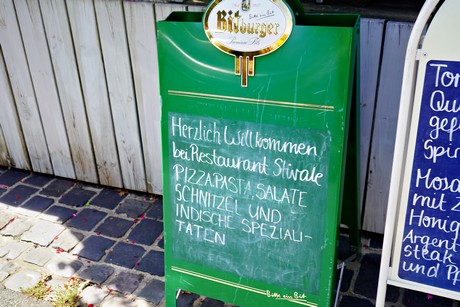 Bitburger
Premium Pils
Herzlich Willkommen
bei Restaurant Stivale
PIZZA PASTA SALATE
SCHNITZEL UND
INDISCHE SPEZIALI-
TÄTEN
Bitte ein Bit
Mosa
mit Z
Honig
Argent
Steak
und Po